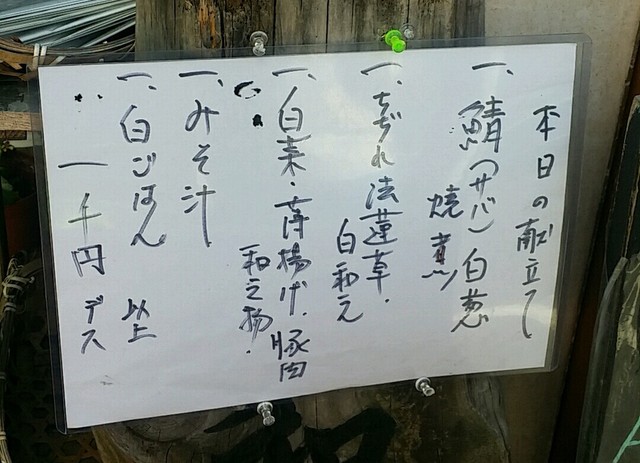 本日の献立て
一、鯖(サバ)白葱
焼煮
一、ちぢれ法蓮草・
白和え
一、白菜・薄揚げ・豚肉
和え物・
一、みそ汁
一、白ごはん 以上
一千円デス